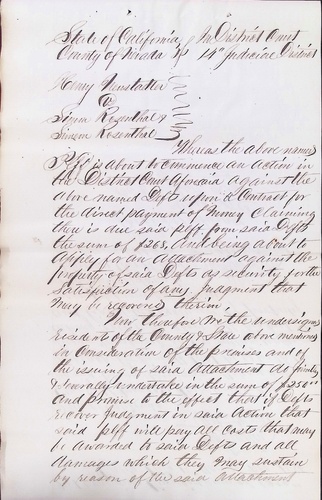 State of California } In District Court
County of Nevada } 14th Judicial District
Henry
vs
Simon Rosenthal &
Simon Rosenthal
Whereas the above named
Plff is about to commence an action in
the District Court Aforesaid against the
above named Defts upon a Contract for
the direct payment of Money claiming
there is due said plff from said Defts
the sum of $268, and being about to
apply for an Attachment against the
property of said Defts as security for the
Satisfaction of any Judgment that
may be recovered therein,
Now therefore We the undersigned
residents of the County & State above mentioned
in Consideration of the premises and of
the issuing of said Attachment do jointly
& severally undertake in the sum of $250
and promise to the effect that if Defts
recover Judgment in said action that
said plff will pay all Costs that may
be awarded to said Defts and all
damages which they may sustain
by reason of the said attachment